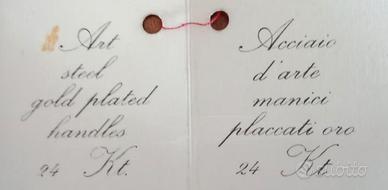 Art
steel
gold plated
handles
24 Kt.
Acciaio
d'arte
manici
placcati oro
24 Kt.
subito